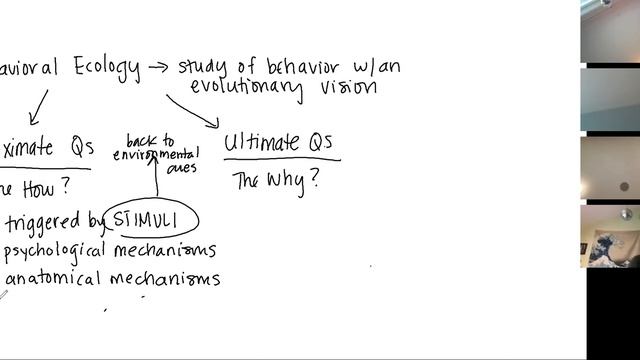 avioral Ecology → study of behavior w/an
evolutionary vision
ximate Qs
back to
environmental
cues
Ultimate Qs
he How?
The Why?
triggered by STIMULI
psychological mechanisms
anatomical mechanisms